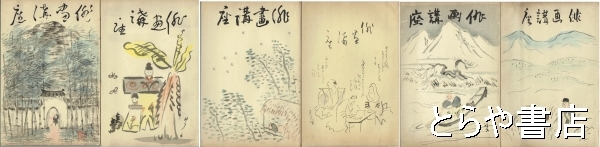 俳画講座
俳画講座
俳畫講座
俳畫講座
俳画講座
俳画講座
とらや書店